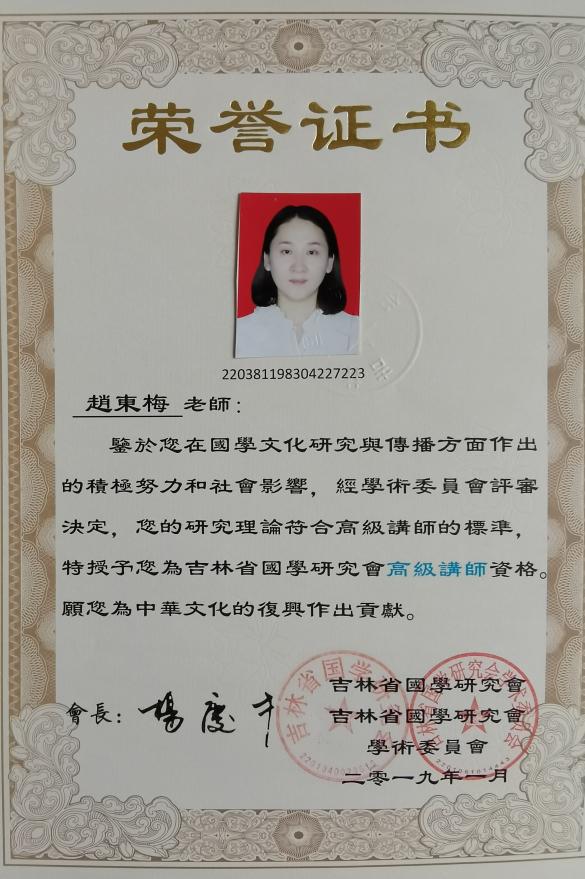 荣誉证书
220381198304227223
趙東梅 老師：
鑒於您在國學文化研究與傳播方面作出
的積極努力和社會影響，經學術委員會評審
決定，您的研究理論符合高級講師的標準，
特授予您為吉林省國學研究會高級講師資格。
願您為中華文化的復興作出貢獻。
吉林省國學研究會
會長：楊慶才
吉林省國學研究會
學術委員會
二零一九年一月